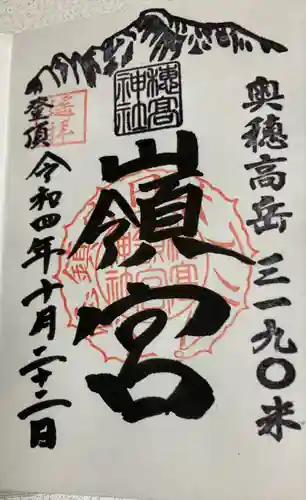 奥穂高岳 三一九〇米
穂高
神社
嶺宮
遥拝
登頂 令和四年十月二十二日